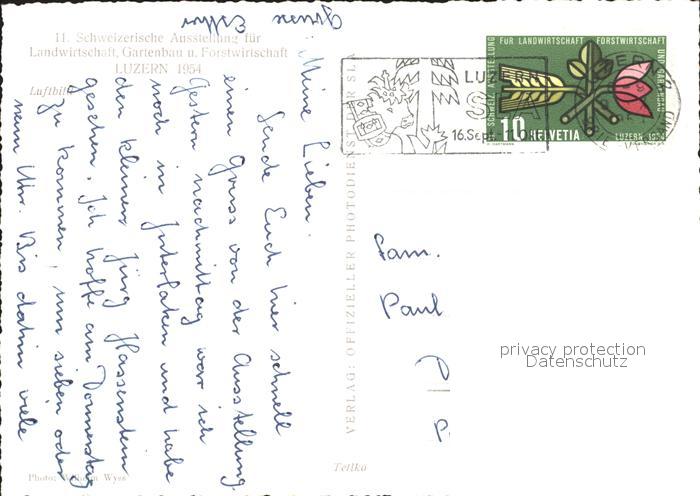 11. Schweizerische Ausstellung für
Landwirtschaft, Gartenbau u. Forstwirtschaft
LUZERN 1954
Luftbild
Meine Lieben.
Sende Euch hier schnell
einen Gruss von der Ausstellung.
Gestern nachmittag war ich
noch in Interlaken und habe
den kleinen Jürg Hassenstein
gesehen. Ich hoffe am Donnerstag
zu kommen, um sieben oder
neun Uhr. Bis dahin viele
Grüsse
Esther
Photo: Wilhelm Wyss
VERLAG: OFFIZIELLER PHOTODIENST DER SLA
Tellko
LUZERN
SLA
16. Sept.
SCHWEIZ. AUSSTELLUNG
FÜR LANDWIRTSCHAFT FORSTWIRTSCHAFT
UND GARTENBAU
LUZERN 1954
10 HELVETIA
H. HARTMANN
Fam.
Paul
P.
privacy protection
Datenschutz